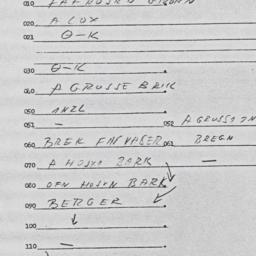 010
020 A LUX
021 O-K
030 O-K
040 A GRUSSE BRIK
050 ANZL
051 — 052 A GRUSSO IN
060 BREK FAHVASER 061 BREGN
070 A HOSKN BARK —
080 OFN HOSKN BARK
090 BERGER
100
110 —